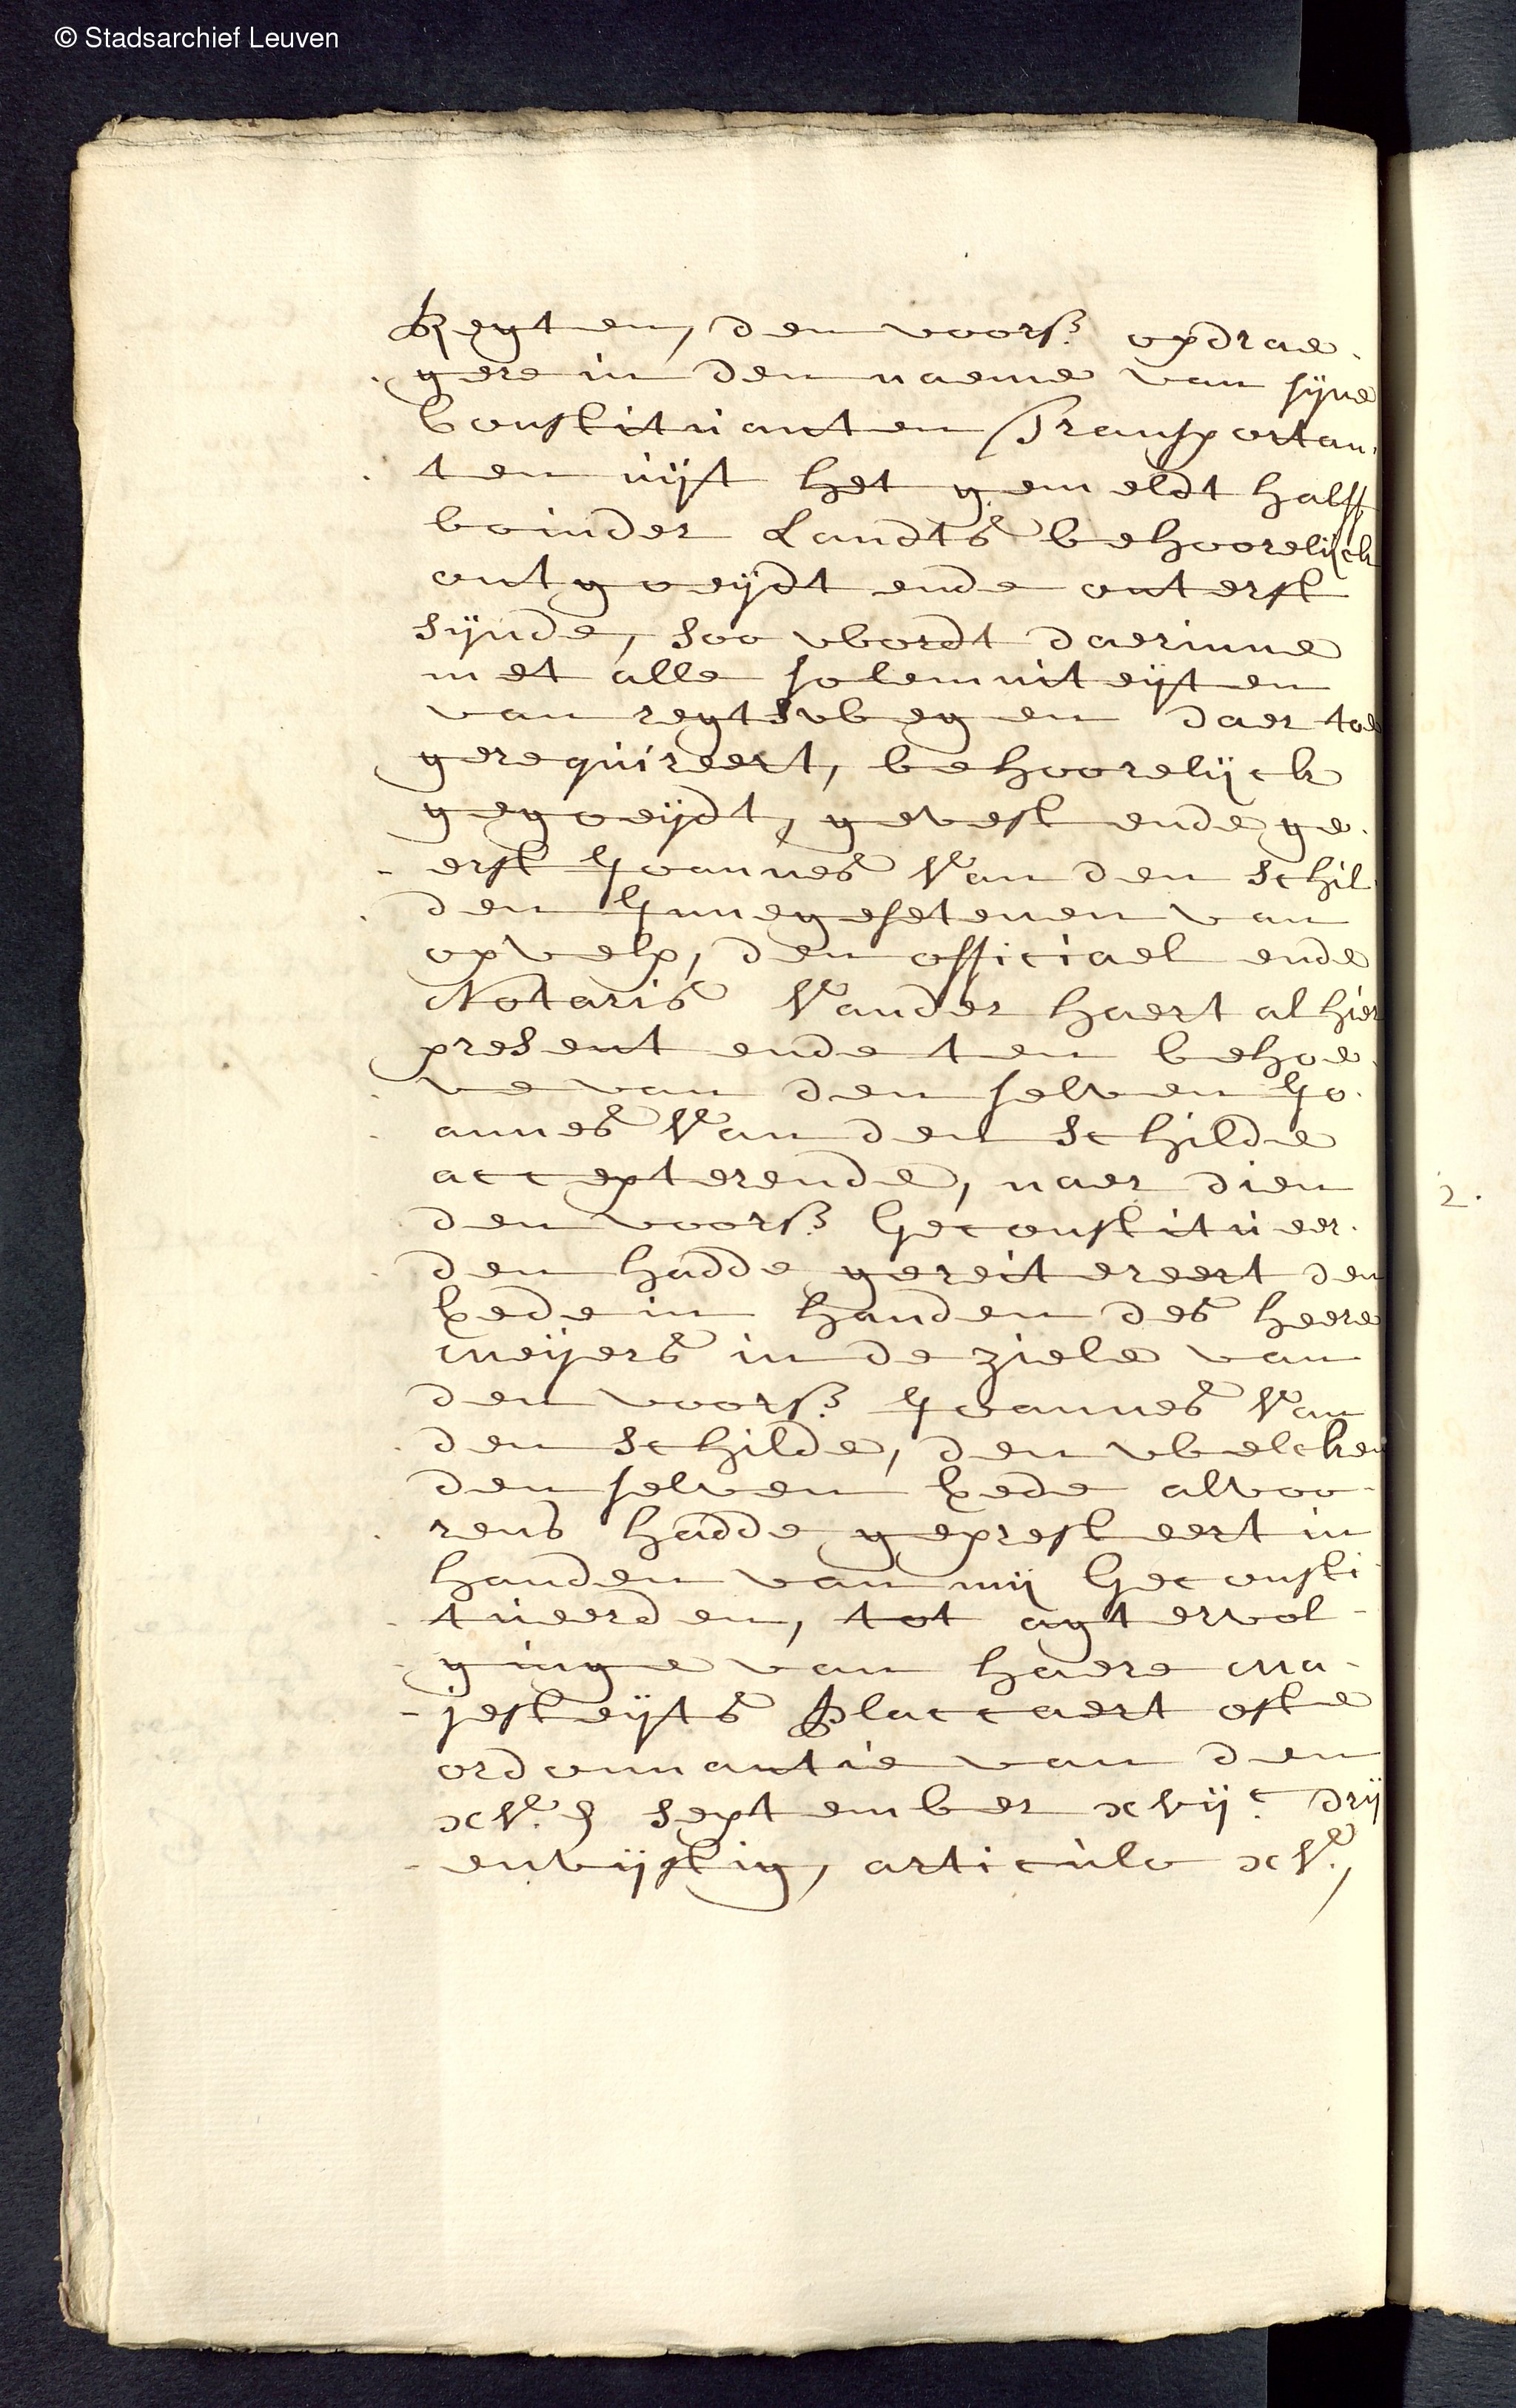 © Stadsarchief Leuven
Regten, den voors. opdrae-
gere in den naeme van sijne
Constituanten Transportan-
ten uijt het gemeldt halff
boinder Landts behoorelijck
ontgoeijdt ende onterft
sijnde, soo wordt daerinne
met alle solemniteijten
van regtswegen daer toe
gerequireert, behoorelijck
gegoeijdt, gevest ende ge-
erft Joannes Van den Schil-
den Innegesetenen van
opvelp, den officiael ende
Notaris Vander haert alhier
present ende ten behoe-
ve van den selven Jo-
annes Van den Schilde
accepterende, naer dien
den voors. Geconstitueer-
den hadde gereitereert den
Eede in handen des heere
Meijers in de ziele van
den voors. Joannes Van
den Schilde, den welcken
den selven Eede alvoo-
rens hadde gepresteert in
handen van mij Geconsti-
tueerden, tot agtervol-
ginge van haere Ma-
jesteijts Placcaert ofte
ordonnantie van den
xv.e september xvij.c drij
envijftig, articulo xv.,
2.